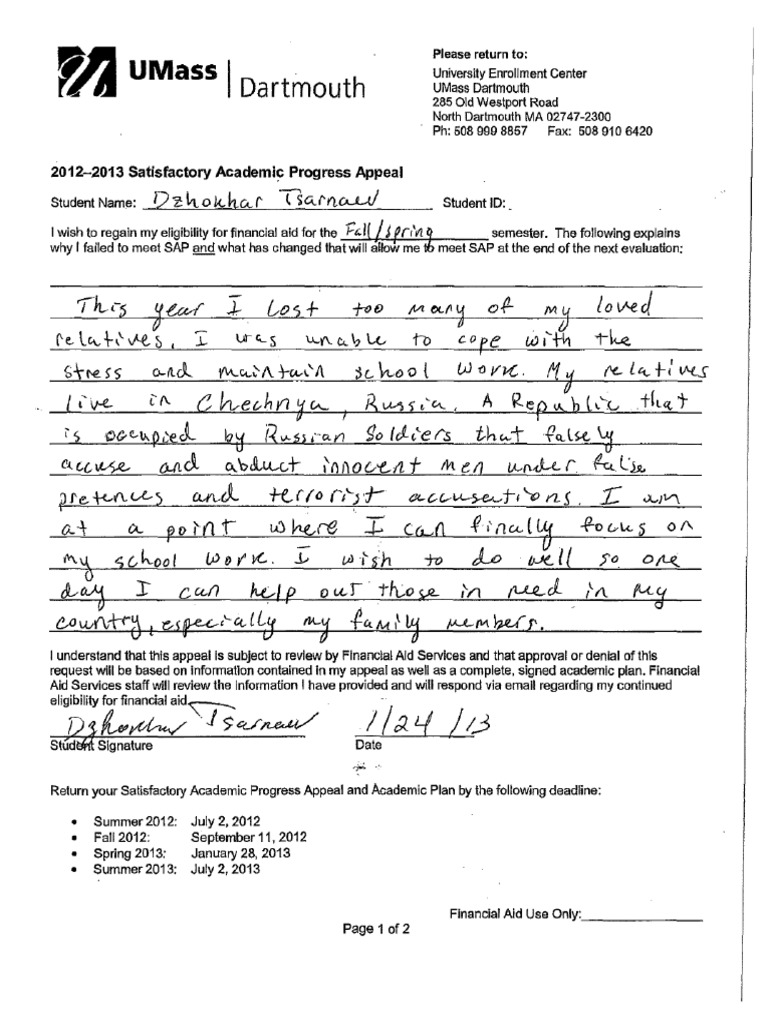 UMass | Dartmouth
Please return to:
University Enrollment Center
UMass Dartmouth
285 Old Westport Road
North Dartmouth MA 02747-2300
Ph: 508 999 8857 Fax: 508 910 6420
2012--2013 Satisfactory Academic Progress Appeal
Student Name: Dzhokhar Tsarnaev Student ID:
I wish to regain my eligibility for financial aid for the Fall/spring semester. The following explains
why I failed to meet SAP and what has changed that will allow me to meet SAP at the end of the next evaluation:
This year I lost too many of my loved
relatives. I was unable to cope with the
stress and maintain school work. My relatives
live in Chechnya, Russia. A Republic that
is occupied by Russian Soldiers that falsely
accuse and abduct innocent men under false
pretences and terrorist accusations. I am
at a point where I can finally focus on
my school work. I wish to do well so one
day I can help out those in need in my
country, especially my family members.
I understand that this appeal is subject to review by Financial Aid Services and that approval or denial of this
request will be based on information contained in my appeal as well as a complete, signed academic plan. Financial
Aid Services staff will review the information I have provided and will respond via email regarding my continued
eligibility for financial aid.
Dzhokhar Tsarnaev 1/24/13
Student Signature Date
Return your Satisfactory Academic Progress Appeal and Academic Plan by the following deadline:
• Summer 2012: July 2, 2012
• Fall 2012: September 11, 2012
• Spring 2013: January 28, 2013
• Summer 2013: July 2, 2013
Financial Aid Use Only:
Page 1 of 2